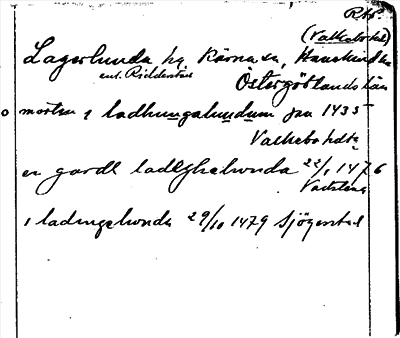 RAp.
(Valkebo hd)
Lagerlunda hg. Kärna sn, Hanekinds hd
enl. Ridderstad
Östergötlands län
o morten j ladhungalundum jan 1435
Valkebo hdtg
en gardt ladhghelunda 22/1 1476
Vadstena
i ladingelunda 29/10 1479 Sjögestad